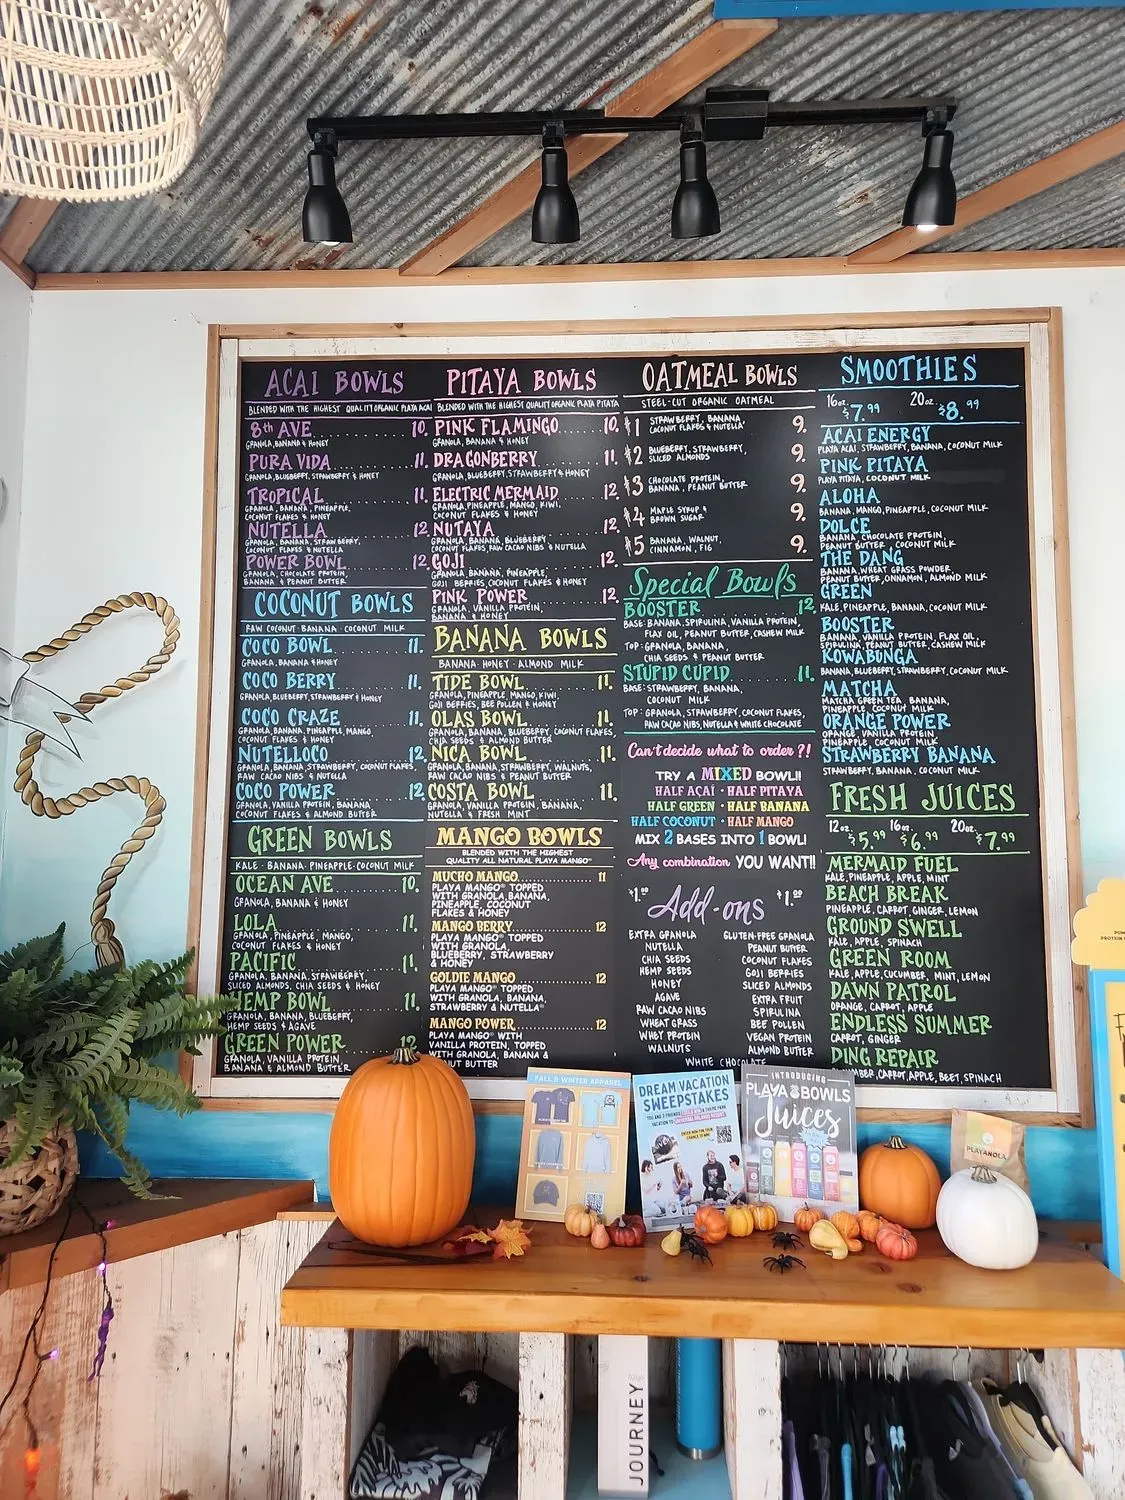 ACAI BOWLS
BLENDED WITH THE HIGHEST QUALITY ORGANIC PLAYA ACAI
8th AVE 10.
GRANOLA, BANANA & HONEY
PURA VIDA 11.
GRANOLA, BLUEBERRY, STRAWBERRY & HONEY
TROPICAL 11.
GRANOLA, BANANA, PINEAPPLE,
COCONUT FLAKES & HONEY
NUTELLA 12.
GRANOLA, BANANA, STRAWBERRY,
COCONUT FLAKES & NUTELLA
POWER BOWL 12
GRANOLA, CHOCOLATE PROTEIN,
BANANA & PEANUT BUTTER
COCONUT BOWLS
RAW COCONUT · BANANA · COCONUT MILK
COCO BOWL 11.
GRANOLA, BANANA & HONEY
COCO BERRY 11.
GRANOLA, BLUEBERRY, STRAWBERRY & HONEY
COCO CRAZE 11.
GRANOLA, BANANA, PINEAPPLE, MANGO,
COCONUT FLAKES & HONEY
NUTELLOCO 12.
GRANOLA, BANANA, STRAWBERRY, COCONUT FLAKES,
RAW CACAO NIBS & NUTELLA
COCO POWER 12.
GRANOLA, VANILLA PROTEIN, BANANA,
COCONUT FLAKES & ALMOND BUTTER
GREEN BOWLS
KALE · BANANA · PINEAPPLE · COCONUT MILK
OCEAN AVE 10.
GRANOLA, BANANA & HONEY
LOLA 11.
GRANOLA, PINEAPPLE, MANGO,
COCONUT FLAKES & HONEY
PACIFIC 11.
GRANOLA, BANANA, STRAWBERRY,
SLICED ALMONDS, CHIA SEEDS & HONEY
HEMP BOWL 11.
GRANOLA, BANANA, BLUEBERRY,
HEMP SEEDS & AGAVE
GREEN POWER 12
GRANOLA, VANILLA PROTEIN,
BANANA & ALMOND BUTTER
PITAYA BOWLS
BLENDED WITH THE HIGHEST QUALITY ORGANIC PLAYA PITAYA
PINK FLAMINGO 10.
GRANOLA, BANANA & HONEY
DRAGONBERRY 11.
GRANOLA, BLUEBERRY, STRAWBERRY & HONEY
ELECTRIC MERMAID 12.
GRANOLA, PINEAPPLE, MANGO, KIWI,
COCONUT FLAKES & HONEY
NUTAYA 12.
GRANOLA, BANANA, BLUEBERRY
COCONUT FLAKES, RAW CACAO NIBS & NUTELLA
GOJI 12.
GRANOLA, BANANA, PINEAPPLE,
GOJI BERRIES, COCONUT FLAKES & HONEY
PINK POWER 12.
GRANOLA, VANILLA PROTEIN,
BANANA & HONEY
BANANA BOWLS
BANANA · HONEY · ALMOND MILK
TIDE BOWL 11.
GRANOLA, PINEAPPLE, MANGO, KIWI,
GOJI BERRIES, BEE POLLEN & HONEY
OLAS BOWL 11.
GRANOLA, BANANA, BLUEBERRY, COCONUT FLAKES,
CHIA SEEDS & ALMOND BUTTER
NICA BOWL 11.
GRANOLA, BANANA, STRAWBERRY, WALNUTS,
RAW CACAO NIBS & PEANUT BUTTER
COSTA BOWL 11.
GRANOLA, VANILLA PROTEIN, BANANA,
NUTELLA & FRESH MINT
MANGO BOWLS
BLENDED WITH THE HIGHEST
QUALITY ALL NATURAL PLAYA MANGO®
MUCHO MANGO 11
PLAYA MANGO® TOPPED
WITH GRANOLA, BANANA,
PINEAPPLE, COCONUT
FLAKES & HONEY
MANGO BERRY 12
PLAYA MANGO® TOPPED
WITH GRANOLA,
BLUEBERRY, STRAWBERRY
& HONEY
GOLDIE MANGO 12
PLAYA MANGO® TOPPED
WITH GRANOLA, BANANA,
STRAWBERRY & NUTELLA®
MANGO POWER 12
PLAYA MANGO® WITH
VANILLA PROTEIN, TOPPED
WITH GRANOLA, BANANA &
NUT BUTTER
OATMEAL BOWLS
STEEL-CUT ORGANIC OATMEAL
#1 STRAWBERRY, BANANA 9.
COCONUT FLAKES & NUTELLA
#2 BLUEBERRY, STRAWBERRY, 9.
SLICED ALMONDS
#3 CHOCOLATE PROTEIN, 9.
BANANA, PEANUT BUTTER
#4 MAPLE SYRUP & 9.
BROWN SUGAR
#5 BANANA, WALNUT, 9.
CINNAMON, FIG
Special Bowls
BOOSTER 12.
BASE: BANANA, SPIRULINA, VANILLA PROTEIN,
FLAX OIL, PEANUT BUTTER, CASHEW MILK
TOP: GRANOLA, BANANA,
CHIA SEEDS & PEANUT BUTTER
STUPID CUPID 11.
BASE: STRAWBERRY, BANANA,
COCONUT MILK
TOP: GRANOLA, STRAWBERRY, COCONUT FLAKES,
RAW CACAO NIBS, NUTELLA & WHITE CHOCOLATE
Can't decide what to order?!
TRY A MIXED BOWL!!
HALF ACAÍ · HALF PITAYA
HALF GREEN · HALF BANANA
HALF COCONUT · HALF MANGO
MIX 2 BASES INTO 1 BOWL!
Any combination YOU WANT!!
$1.00 Add-ons $1.00
EXTRA GRANOLA
NUTELLA
CHIA SEEDS
HEMP SEEDS
HONEY
AGAVE
RAW CACAO NIBS
WHEAT GRASS
WHEY PROTEIN
WALNUTS
GLUTEN-FREE GRANOLA
PEANUT BUTTER
COCONUT FLAKES
GOJI BERRIES
SLICED ALMONDS
EXTRA FRUIT
SPIRULINA
BEE POLLEN
VEGAN PROTEIN
ALMOND BUTTER
WHITE CHOCOLATE
SMOOTHIES
16oz. $7.99 20oz. $8.99
ACAI ENERGY
PLAYA ACAI, STRAWBERRY, BANANA, COCONUT MILK
PINK PITAYA
PLAYA PITAYA, COCONUT MILK
ALOHA
BANANA, MANGO, PINEAPPLE, COCONUT MILK
DOLCE
BANANA, CHOCOLATE PROTEIN,
PEANUT BUTTER, COCONUT MILK
THE DANG
BANANA, WHEAT GRASS POWDER
PEANUT BUTTER, CINNAMON, ALMOND MILK
GREEN
KALE, PINEAPPLE, BANANA, COCONUT MILK
BOOSTER
BANANA, VANILLA PROTEIN, FLAX OIL,
SPIRULINA, PEANUT BUTTER, CASHEW MILK
KOWABUNGA
BANANA, BLUEBERRY, STRAWBERRY, COCONUT MILK
MATCHA
MATCHA GREEN TEA, BANANA,
PINEAPPLE, COCONUT MILK
ORANGE POWER
ORANGE, VANILLA PROTEIN
PINEAPPLE, COCONUT MILK
STRAWBERRY BANANA
STRAWBERRY, BANANA, COCONUT MILK
FRESH JUICES
12oz. $5.99 16oz. $6.99 20oz. $7.99
MERMAID FUEL
KALE, PINEAPPLE, APPLE, MINT
BEACH BREAK
PINEAPPLE, CARROT, GINGER, LEMON
GROUND SWELL
KALE, APPLE, SPINACH
GREEN ROOM
KALE, APPLE, CUCUMBER, MINT, LEMON
DAWN PATROL
ORANGE, CARROT, APPLE
ENDLESS SUMMER
CARROT, GINGER
DING REPAIR
CARROT, APPLE, BEET, SPINACH
FALL & WINTER APPAREL
DREAM VACATION
SWEEPSTAKES
INTRODUCING
PLAYA BOWLS
Juices
PLAYANOLA
JOURNEY